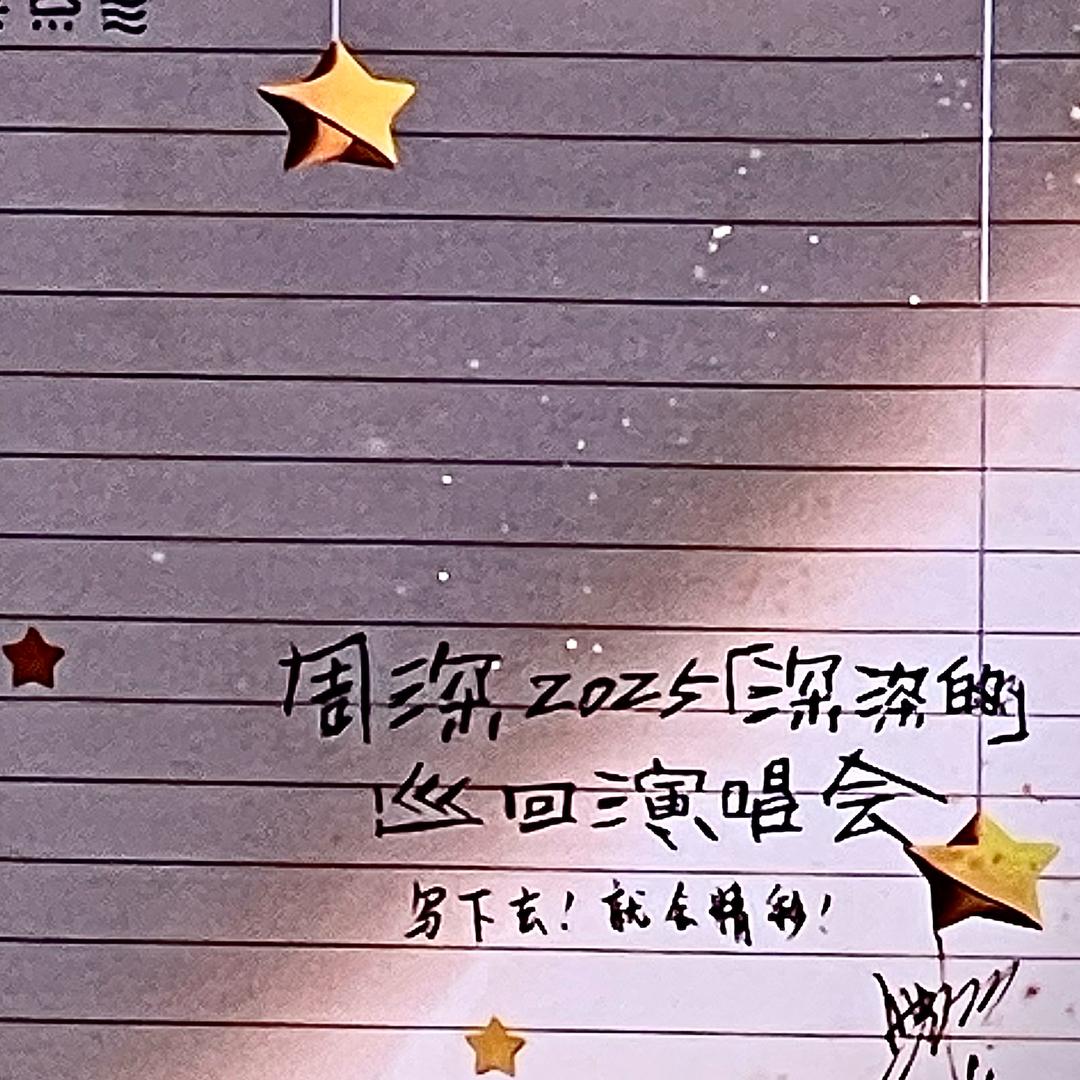 周深2025「深深的
巡回演唱会
写下去!就会精彩!